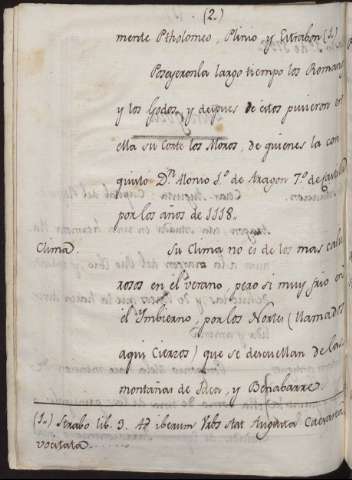 (2.)
mente Ptholomeo, Plinio, y Estrabon (1.)
Poseyeronla largo tiempo los Romanos
y los Godos, y despues de estos pusieron en
ella su Corte los Moros, de quienes la con
quistó Dn. Alonso 1.º de Aragon 7.º de Castilla
por los años de 1118.
Clima. Su Clima no es de los mas calu
rosos en el verano, pero si muy frio en
el Imbierno, por los Nortes (llamados
aqui Cierzos) que se desuellan de las
montañas de Jaca, y Benabarre.
(1.) Strabo lib. 3. Ad iberum Urbs stat Augusta Caesarea
vocitata.